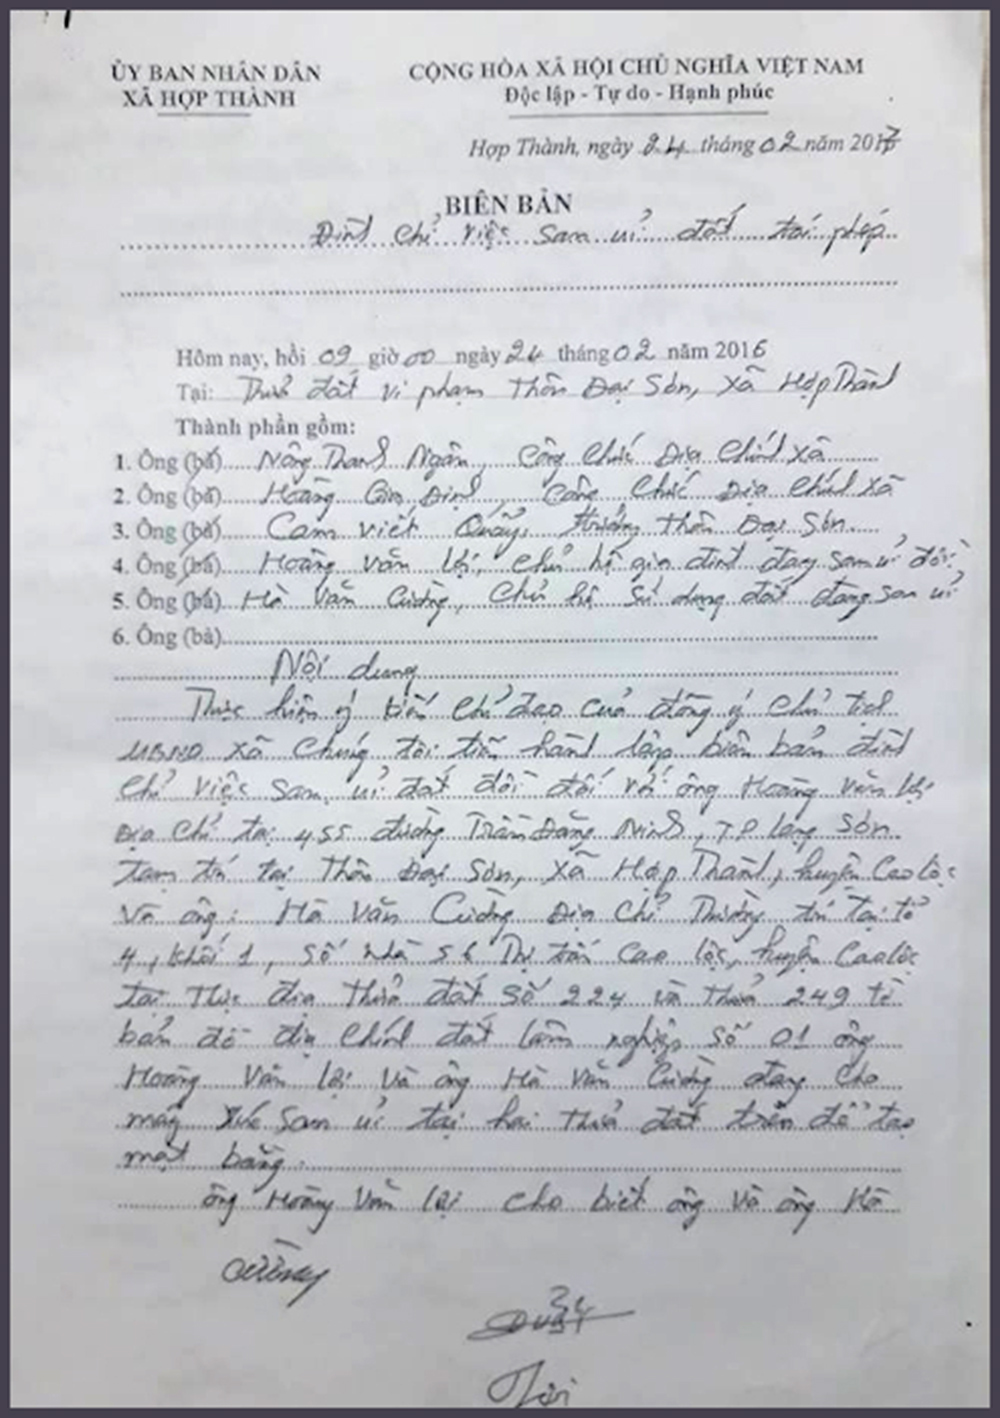 ỦY BAN NHÂN DÂN
XÃ HỢP THÀNH
CỘNG HÒA XÃ HỘI CHỦ NGHĨA VIỆT NAM
Độc lập - Tự do - Hạnh phúc
Hợp Thành, ngày 24 tháng 02 năm 2017
BIÊN BẢN
Đình chỉ việc san ủi đất trái phép
Hôm nay, hồi 09 giờ 00 ngày 24 tháng 02 năm 2016
Tại: Thửa đất vi phạm Thôn Đại Sơn, xã Hợp Thành
Thành phần gồm:
1. Ông (bà) Nông Thanh Ngân, Công chức Địa chính xã
2. Ông (bà) Hoàng Gia Định, Công chức Địa chính xã
3. Ông (bà) Cam Viết Quẩy, trưởng thôn Đại Sơn.
4. Ông (bà) Hoàng Văn Lại, chủ hộ gia đình đang san ủi đồi
5. Ông (bà) Hà Văn Cường, chủ hộ sử dụng đất đang san ủi
6. Ông (bà)
Nội dung
Thực hiện ý kiến chỉ đạo của đồng ý chủ tịch
UBND xã chúng tôi tiến hành lập biên bản đình
chỉ việc san ủi đất đồi đối với ông Hoàng Văn Lại
Địa chỉ tại 455 đường Trần Đăng Ninh, TP Lạng Sơn
tạm trú tại thôn Đại Sơn, xã Hợp Thành, huyện Cao Lộc
Và ông: Hà Văn Cường Địa chỉ Thường trú tại tổ
4, khối 1, số nhà 56 Thị trấn Cao Lộc, huyện Cao Lộc
tại thực địa thửa đất số 224 và thửa 249 tờ
bản đồ địa chính đất lâm nghiệp số 01 ông
Hoàng Văn Lại và ông Hà Văn Cường đang cho
máy xúc san ủi tại hai thửa đất trên để tạo
mặt bằng.
ông Hoàng Văn Lại cho biết ông và ông Hà
Cường
Lại